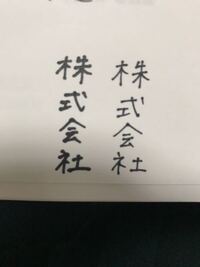 株式会社
株式会社